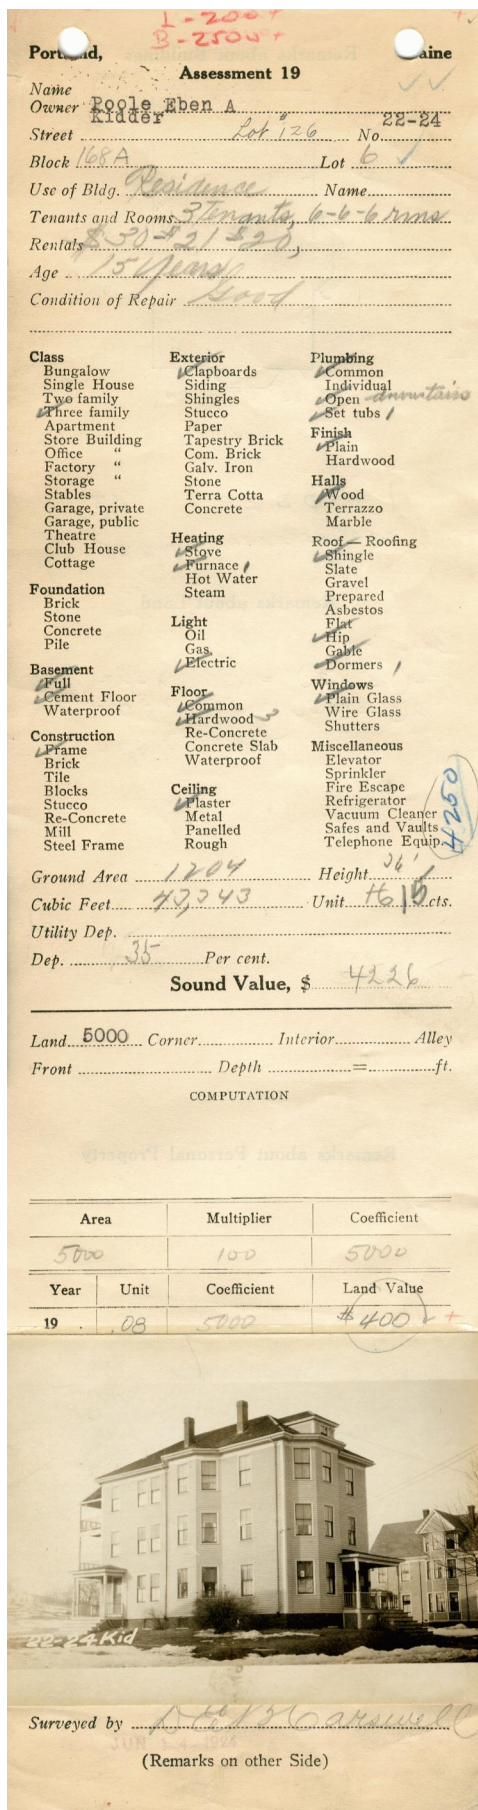 L-200+
B-2500+
Portland, Maine
Assessment 19
Name
Owner Poole Eben A
Kidder
Street Lot #126 No. 22-24
Block 168A Lot 6
Use of Bldg. Residence Name
Tenants and Rooms 3 Tenants, 6-6-6 rms
Rentals $30-$21 $20,
Age 15 Years
Condition of Repair Good
Class
Bungalow
Single House
Two family
Three family
Apartment
Store Building
Office "
Factory "
Storage "
Stables
Garage, private
Garage, public
Theatre
Club House
Cottage
Foundation
Brick
Stone
Concrete
Pile
Basement
Full
Cement Floor
Waterproof
Construction
Frame
Brick
Tile
Blocks
Stucco
Re-Concrete
Mill
Steel Frame
Exterior
Clapboards
Siding
Shingles
Stucco
Paper
Tapestry Brick
Com. Brick
Galv. Iron
Stone
Terra Cotta
Concrete
Heating
Stove
Furnace 1
Hot Water
Steam
Light
Oil
Gas
Electric
Floor
Common
Hardwood 3
Re-Concrete
Concrete Slab
Waterproof
Ceiling
Plaster
Metal
Panelled
Rough
Plumbing
Common
Individual
Open downstairs
Set tubs 1
Finish
Plain
Hardwood
Halls
Wood
Terrazzo
Marble
Roof — Roofing
Shingle
Slate
Gravel
Prepared
Asbestos
Flat
Hip
Gable
Dormers 1
Windows
Plain Glass
Wire Glass
Shutters
Miscellaneous
Elevator
Sprinkler
Fire Escape
Refrigerator
Vacuum Cleaner
Safes and Vaults
Telephone Equip.
4250
Ground Area 1204 Height 36'
Cubic Feet 43,343 Unit 15 cts.
Utility Dep.
Dep. 35 Per cent.
Sound Value, $ 4226
Land 5000 Corner Interior Alley
Front Depth = ft.
COMPUTATION
Area Multiplier Coefficient
5000 100 5000
Year Unit Coefficient Land Value
19 .08 5000 $400
22-24 Kid
Surveyed by
(Remarks on other Side)